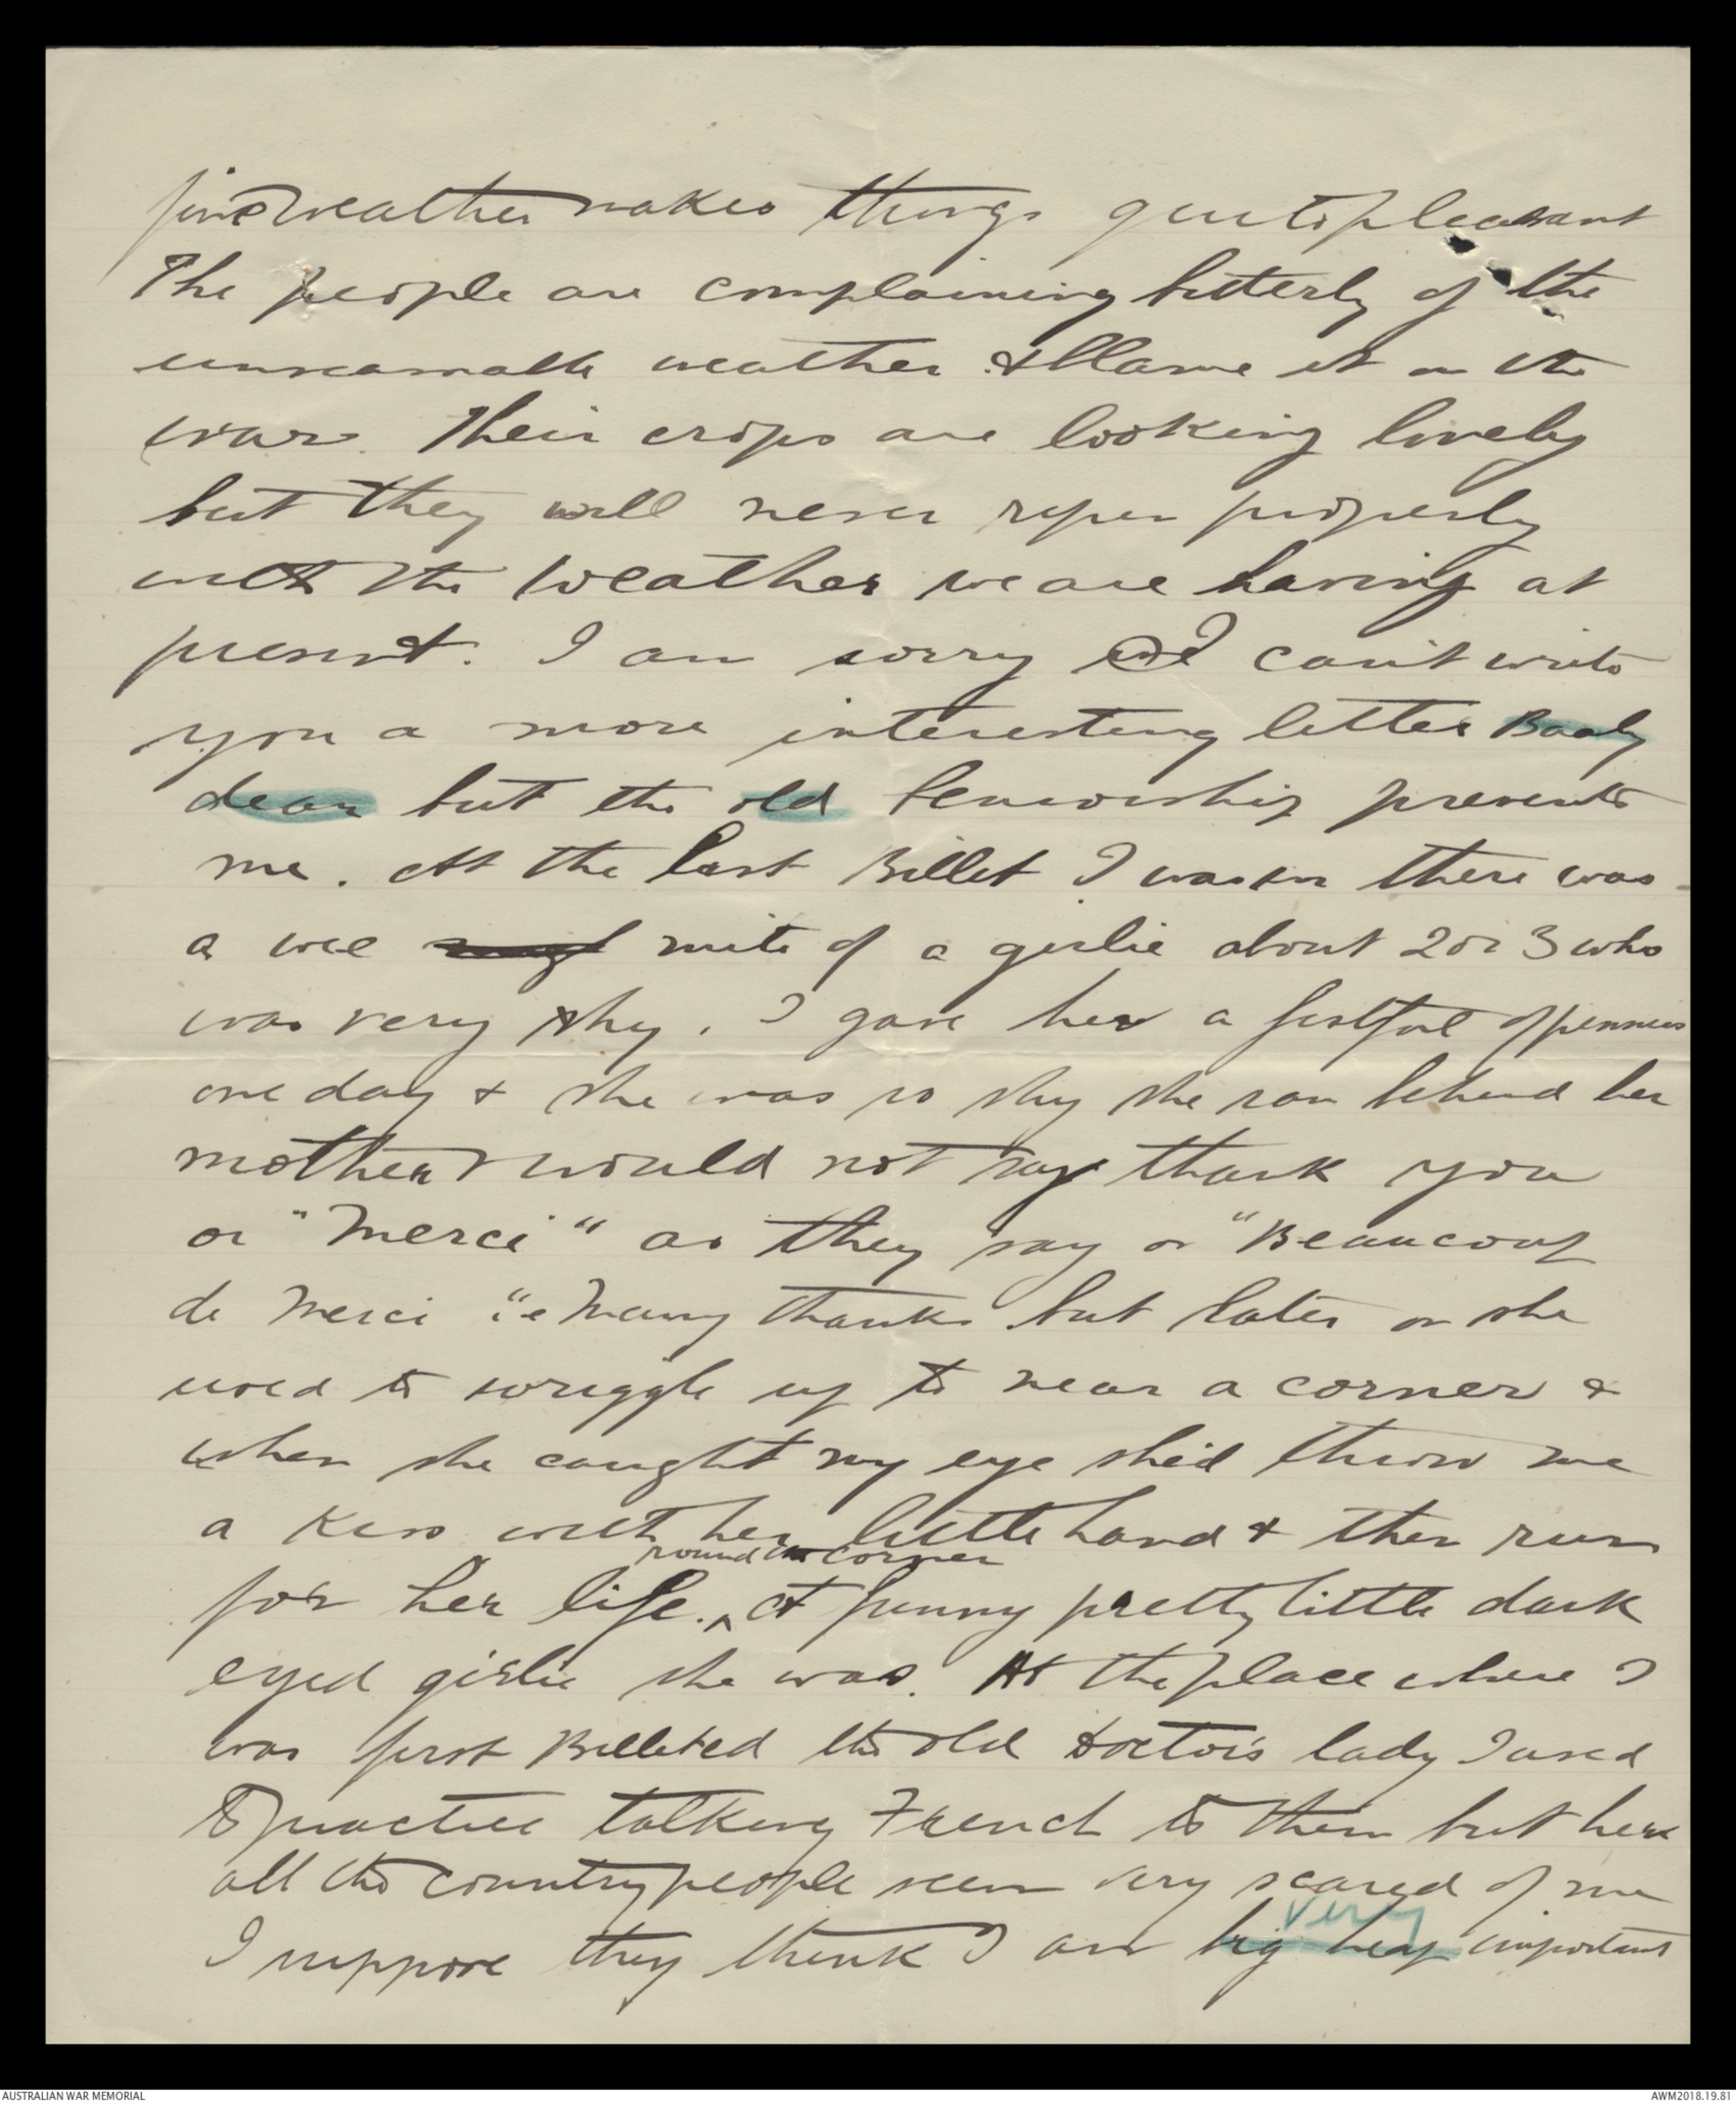 fine weather makes things quite pleasant
The people are complaining bitterly of the
unseasonable weather & blame it on the
war. Their crops are looking lovely
but they will never ripen properly
with the weather we are having at
present. I am sorry I can't write
you a more interesting letter Baaly
dear but the old Censorship prevents
me. At the last Billet I was in there was
a wee mite of a girlie about 2 or 3 who
was very shy. I gave her a fistful of pennies
one day & she was so shy she ran behind her
mother & would not say thank you
or "Merci" as they say or "Beaucoup
de Merci" ie Many thanks but later on she
used to wriggle up to near a corner &
when she caught my eye she'd throw me
a kiss with her little hand & then run
round corner
for her life. ^ A funny pretty little dark
eyed girlie she was. At the place where I
was first Billeted the old Doctor's lady I used
to practice talking French to them but here
all the country people seem very scared of me
very
I suppose they think I am big heap important
AUSTRALIAN WAR MEMORIAL
AWM2018.19.81